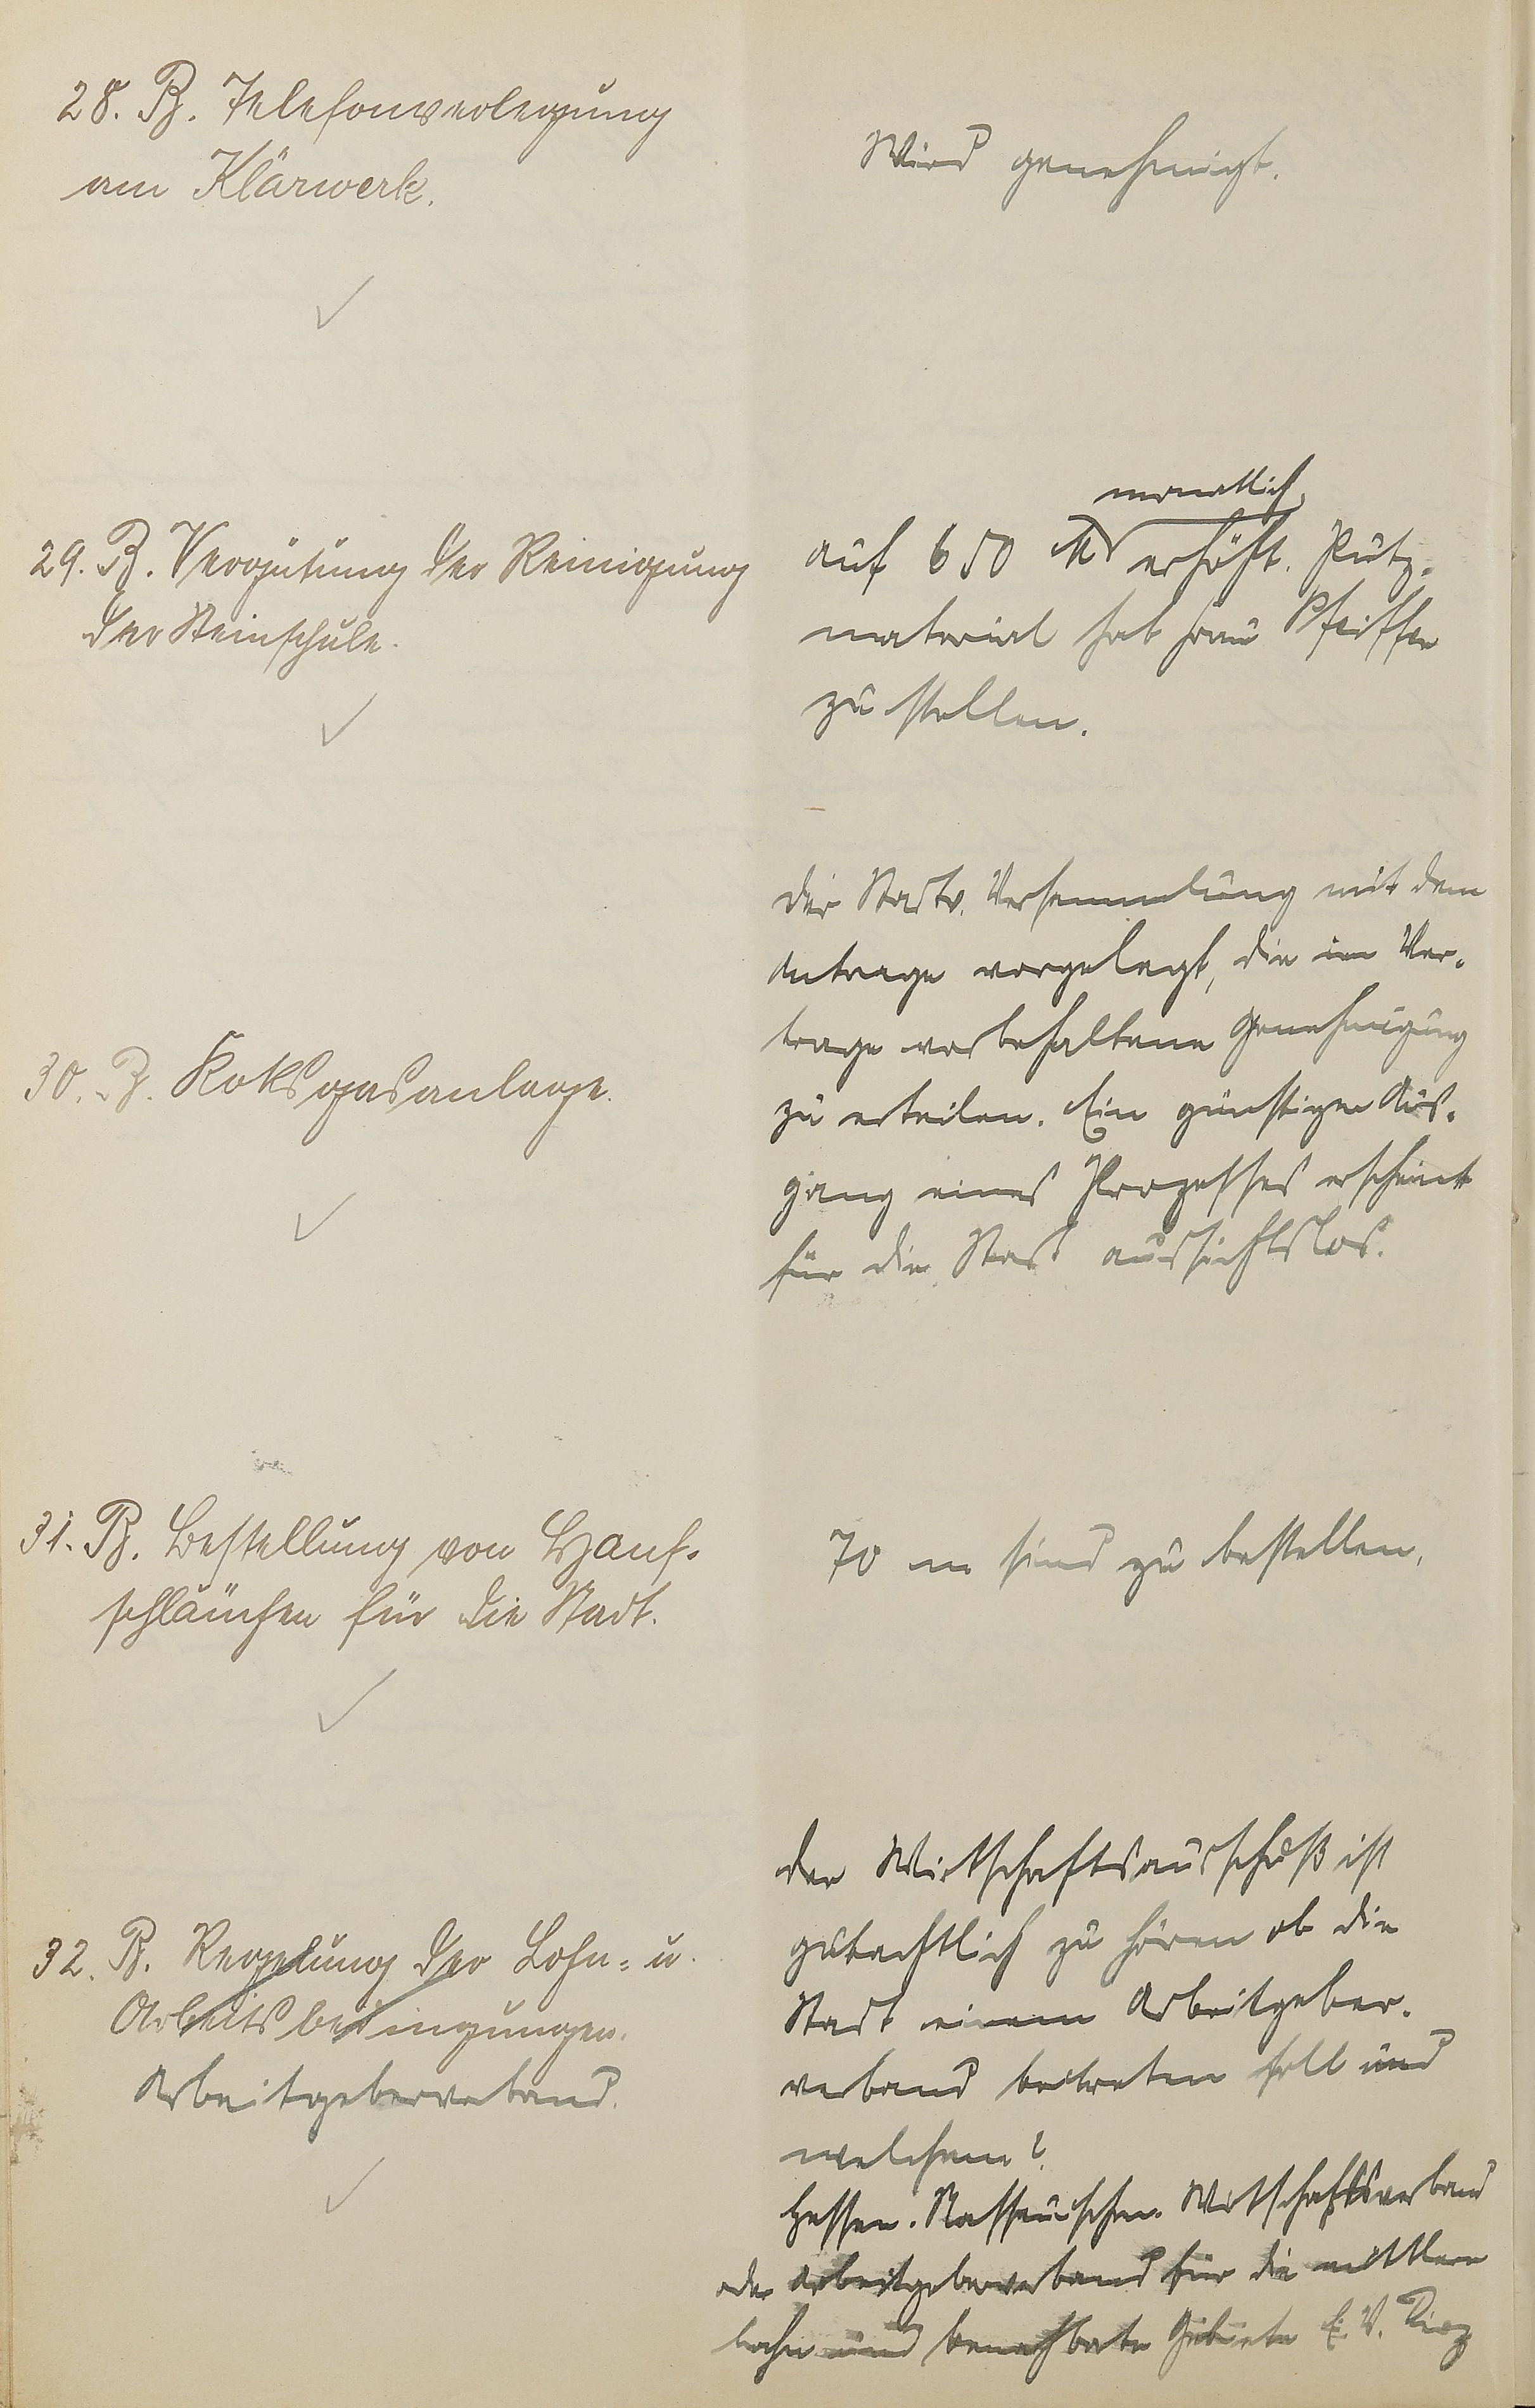 28. B. Telefonverlegung
am Klärwerk.
Wird genehmigt.
29. B. Vergütung der Reinigung
der Steinschule.
monatlich
auf 650 M erhöht. Putz-
material hat Frau Pfeiffer
zu stellen.
30. B. Koksgasanlage.
Der Stadtv. Versammlung mit dem
Antrage vorgelegt, die im Ver-
trage vorbehaltene Genehmigung
zu erteilen. Ein günstiger Aus-
gang eines Prozesses erscheint
für die Stadt aussichtslos.
31. B. Bestellung von Hanf-
schläuchen für die Stadt.
70 m sind zu bestellen.
32. B. Regelung der Lohn- u.
Arbeitsbedingungen.
Arbeitgeberverband.
Der Wirtschaftsausschuß ist
gutachtlich zu hören ob die
Stadt einem Arbeitgeber-
verband beitreten soll und
welchem?
Hessen-Nassauischen Wirtschaftsverband
oder Arbeitgeberverband für die mittlere
Lahn und benachbarte Gebiete E. V. Diez